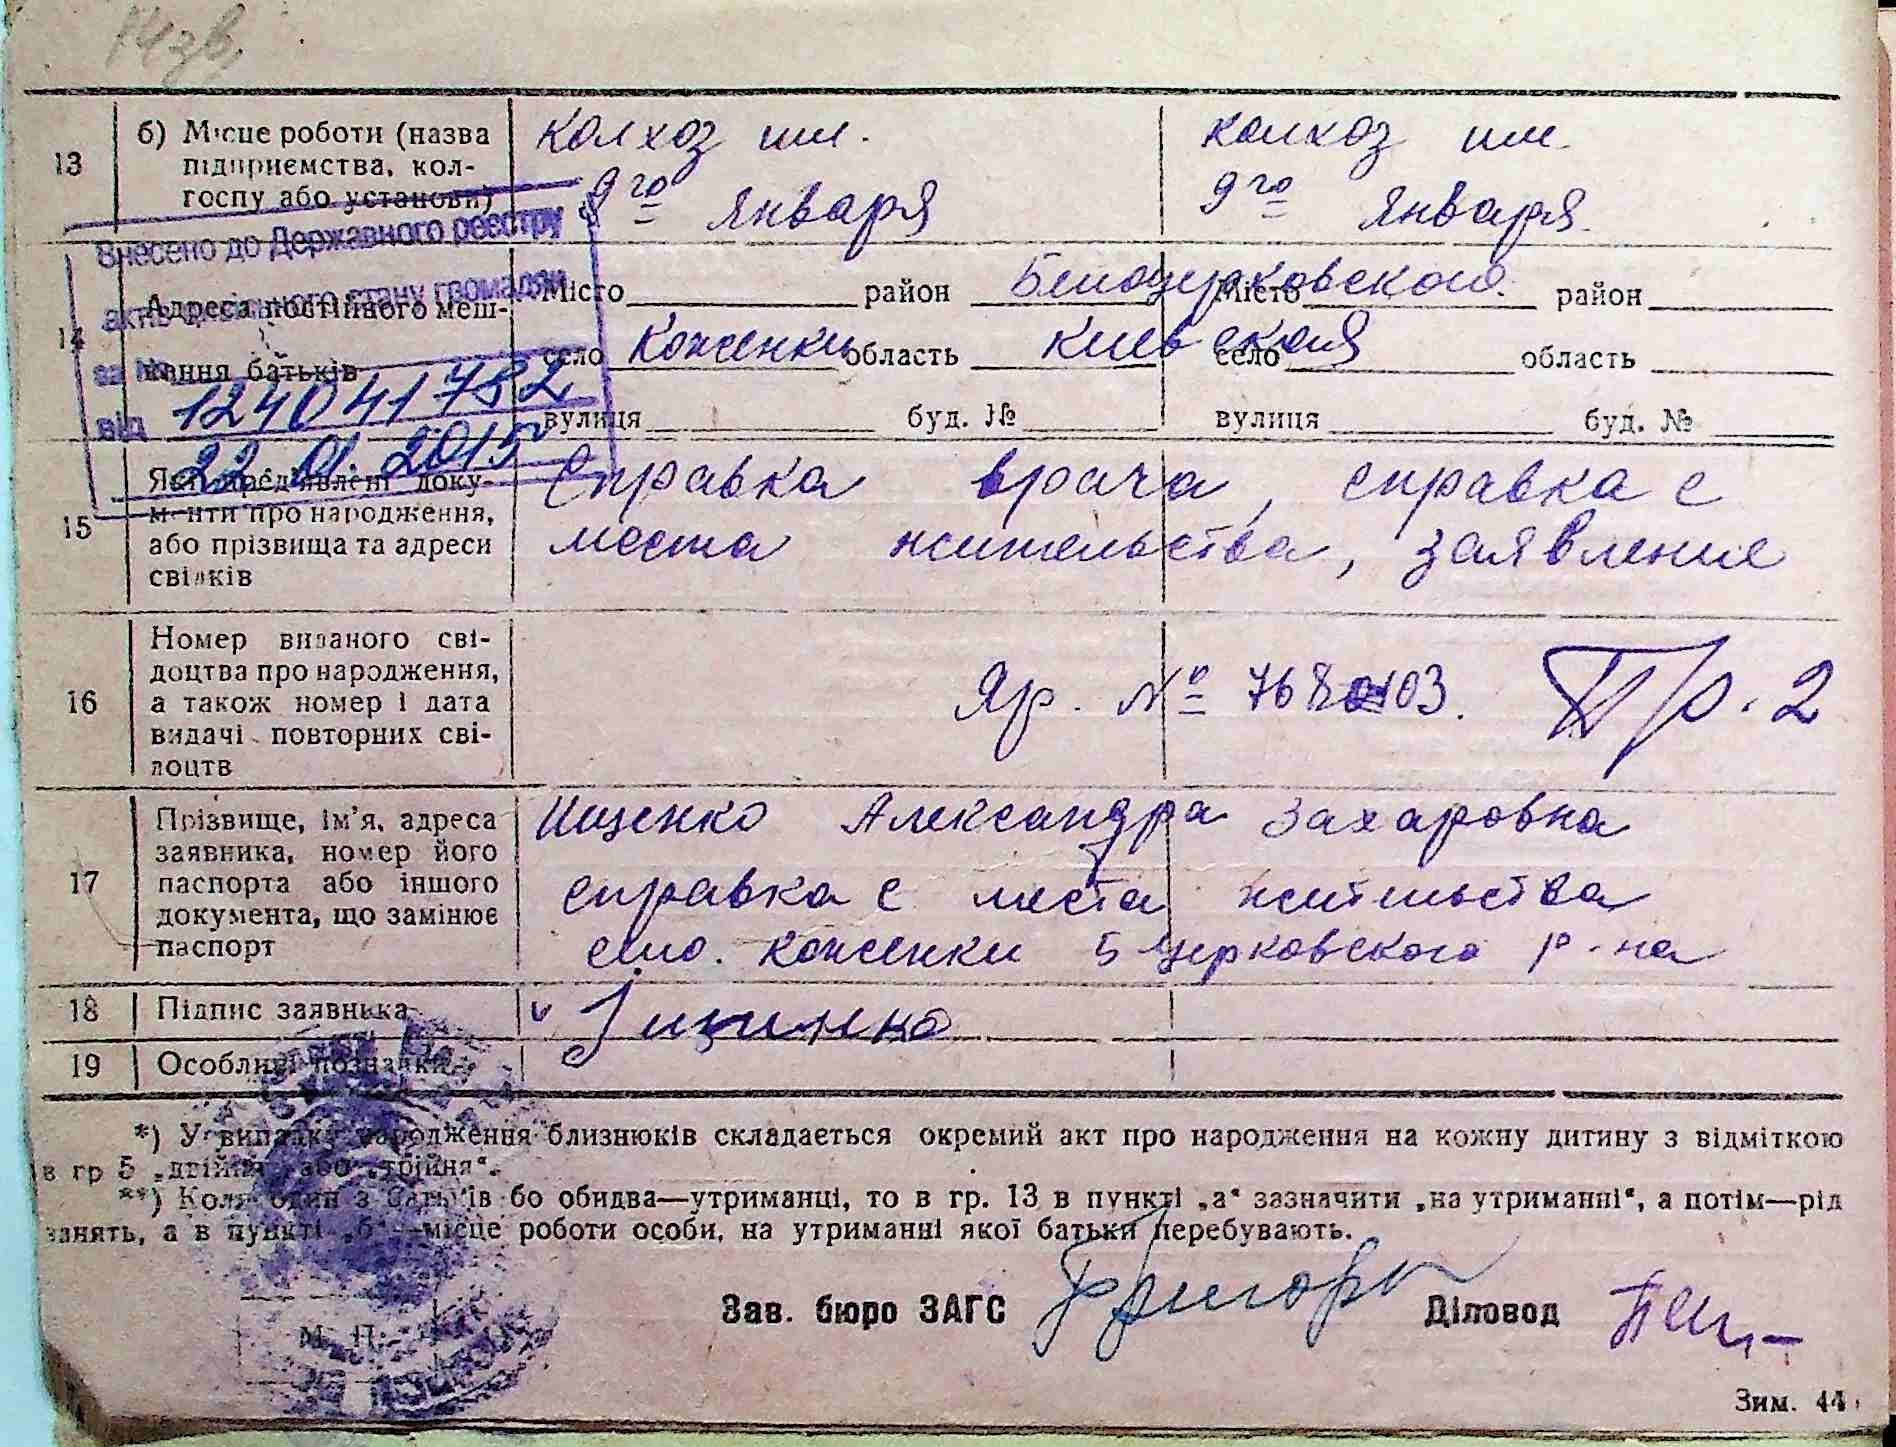 14 зв.
13
б) Місце роботи (назва підприємства, колгоспу або установи)
колхоз им. 9го января
колхоз им. 9го января
Внесено до Державного реєстру
актів цивільного стану громадян
за №
від 124041782
22.01.2015
14
Адреса постійного мешкання батьків
Місто район Белоцерковского
село Коженки область Киевская
вулиця буд. №
Місто район
село область
вулиця буд. №
15
Які пред'явлені документи про народження, або прізвища та адреси свідків
Справка врача, справка с
места жительства, заявление
16
Номер виданого свідоцтва про народження, а також номер і дата видачі повторних свідоцтв
Яр. №
Пр. 2
17
Прізвище, ім'я, адреса заявника, номер його паспорта або іншого документа, що замінює паспорт
Ищенко Александра Захаровна
справка с места жительства
село. Коженки Б Церковского р-на
18
Підпис заявника
Іщинко
19
Особливі познавки
*) У випадку народження близнюків складається окремий акт про народження на кожну дитину з відміткою
в гр 5 „двійня" або „трійня".
**) Коли один з батьків бо обидва—утриманці, то в гр. 13 в пункті „а" зазначити „на утриманні", а потім—рід
занять, а в пункті „б"—місце роботи особи, на утриманні якої батьки перебувають.
Зав. бюро ЗАГС
Діловод
М. П.
Зим. 44